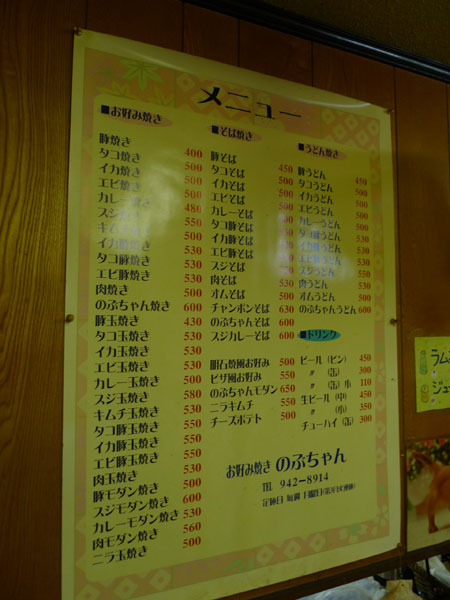 メニュー
■お好み焼き
豚焼き 400
タコ焼き 500
イカ焼き 500
エビ焼き 500
カレー焼き 480
スジ焼き 550
キムチ焼き 500
イカ豚焼き 530
タコ豚焼き 530
エビ豚焼き 530
肉焼き 500
のぶちゃん焼き 600
豚玉焼き 430
タコ玉焼き 530
イカ玉焼き 530
エビ玉焼き 530
カレー玉焼き 500
スジ玉焼き 580
キムチ玉焼き 530
タコ豚玉焼き 550
イカ豚玉焼き 550
エビ豚玉焼き 550
肉玉焼き 530
豚モダン焼き 500
スジモダン焼き 600
カレーモダン焼き 530
肉モダン焼き 560
ニラ玉焼き 500
■そば焼き
豚そば 450
タコそば 500
イカそば 500
エビそば 500
カレーそば 500
タコ豚そば 530
イカ豚そば 530
エビ豚そば 530
スジそば 550
肉そば 530
オムそば 500
チャンポンそば 630
のぶちゃんそば 600
スジカレーそば 600
明石焼風お好み 500
ピザ風お好み 550
のぶちゃんモダン 650
ニラキムチ 550
チーズポテト 500
■うどん焼き
豚うどん 450
タコうどん 500
イカうどん 500
エビうどん 500
カレーうどん 500
タコ豚うどん 530
イカ豚うどん 530
エビ豚うどん 530
スジうどん 550
肉うどん 530
オムうどん 500
のぶちゃんうどん 600
■ドリンク
ビール(ビン) 450
〃 (缶) 300
〃 (缶)小 110
生ビール(中) 450
〃 (小) 350
チューハイ(缶) 300
お好み焼き のぶちゃん
TEL 942-8914
定休日 毎週
ラム
ジュ